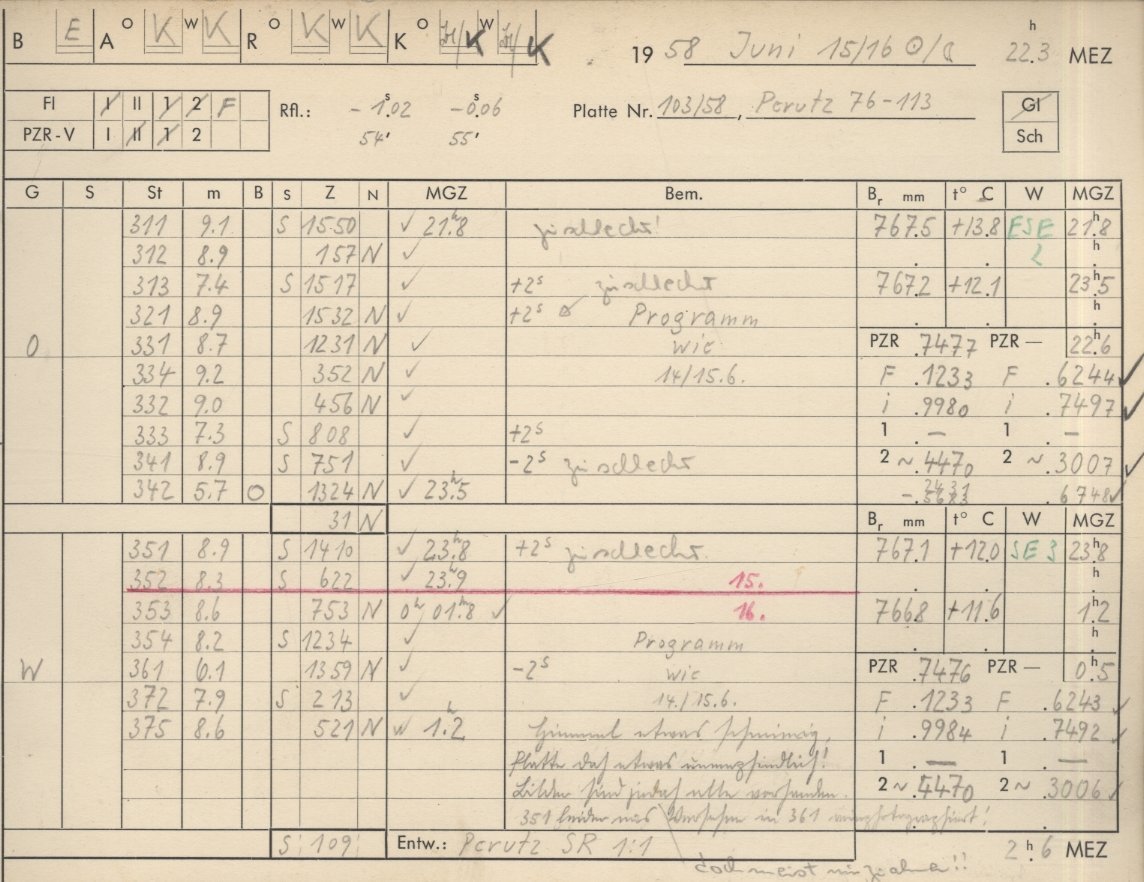 B E A O K W K R O K W K K O W K 19 58 Juni 15/16 ☉/☾ 22.3 h MEZ
Fl I II 1 2 F Rfl.: - 1.02 s -0.06 s Platte Nr. 103/58, Perutz 76-113 Gl
PZR-V I II 1 2 54' 55' Sch
G S St m B S Z N MGZ Bem. Br mm t° C W MGZ
311 9.1 S 1550 ✓ 21.8 h zu schlecht! 767.5 +13.8 ESE 21.8 h
312 8.9 157 N ✓ 2 h
313 7.4 S 1517 ✓ +2s zu schlecht 767.2 +12.1 23.5 h
321 8.9 1532 N ✓ +2s Programm h
O 331 8.7 1231 N ✓ wie PZR .7477 PZR — 22.6 h
334 9.2 352 N ✓ 14/15.6. F .1233 F .6244 ✓
332 9.0 456 N ✓ i .9980 i .7497 ✓
333 7.3 S 808 ✓ +2s 1 . — 1 . —
341 8.9 S 751 ✓ -2s zu schlecht 2 ~ .4470 2 ~ .3007 ✓
342 5.7 O 1324 N ✓ 23.5 h 6748 ✓
31 N Br mm t° C W MGZ
351 8.9 S 1410 ✓ 23.8 h +2s zu schlecht. 767.1 +12.0 SE 3 23.8 h
352 8.3 S 622 ✓ 23.9 h 15. h
353 8.6 753 N 0h, 01.8 h ✓ 16. 766.8 +11.6 1.2
354 8.2 S 1234 ✓ Programm h
W 361 6.1 1359 N ✓ -2s wie PZR .7476 PZR — 0.5 h
372 7.9 S 213 ✓ 14./15.6. F .1233 F .6243 ✓
375 8.6 521 N 1.2 h Himmel etwas schmierig, i .9984 i .7492 ✓
Platte daß etwas unempfindlich! 1 — 1 —
Bilder sind jedoch alle vorhanden. 2 ~ .4470 2 ~ .3006 ✓
351 leider aus Versehen in 361
S 109 Entw.: Perutz SR 1:1 2.6 h MEZ
doch meist